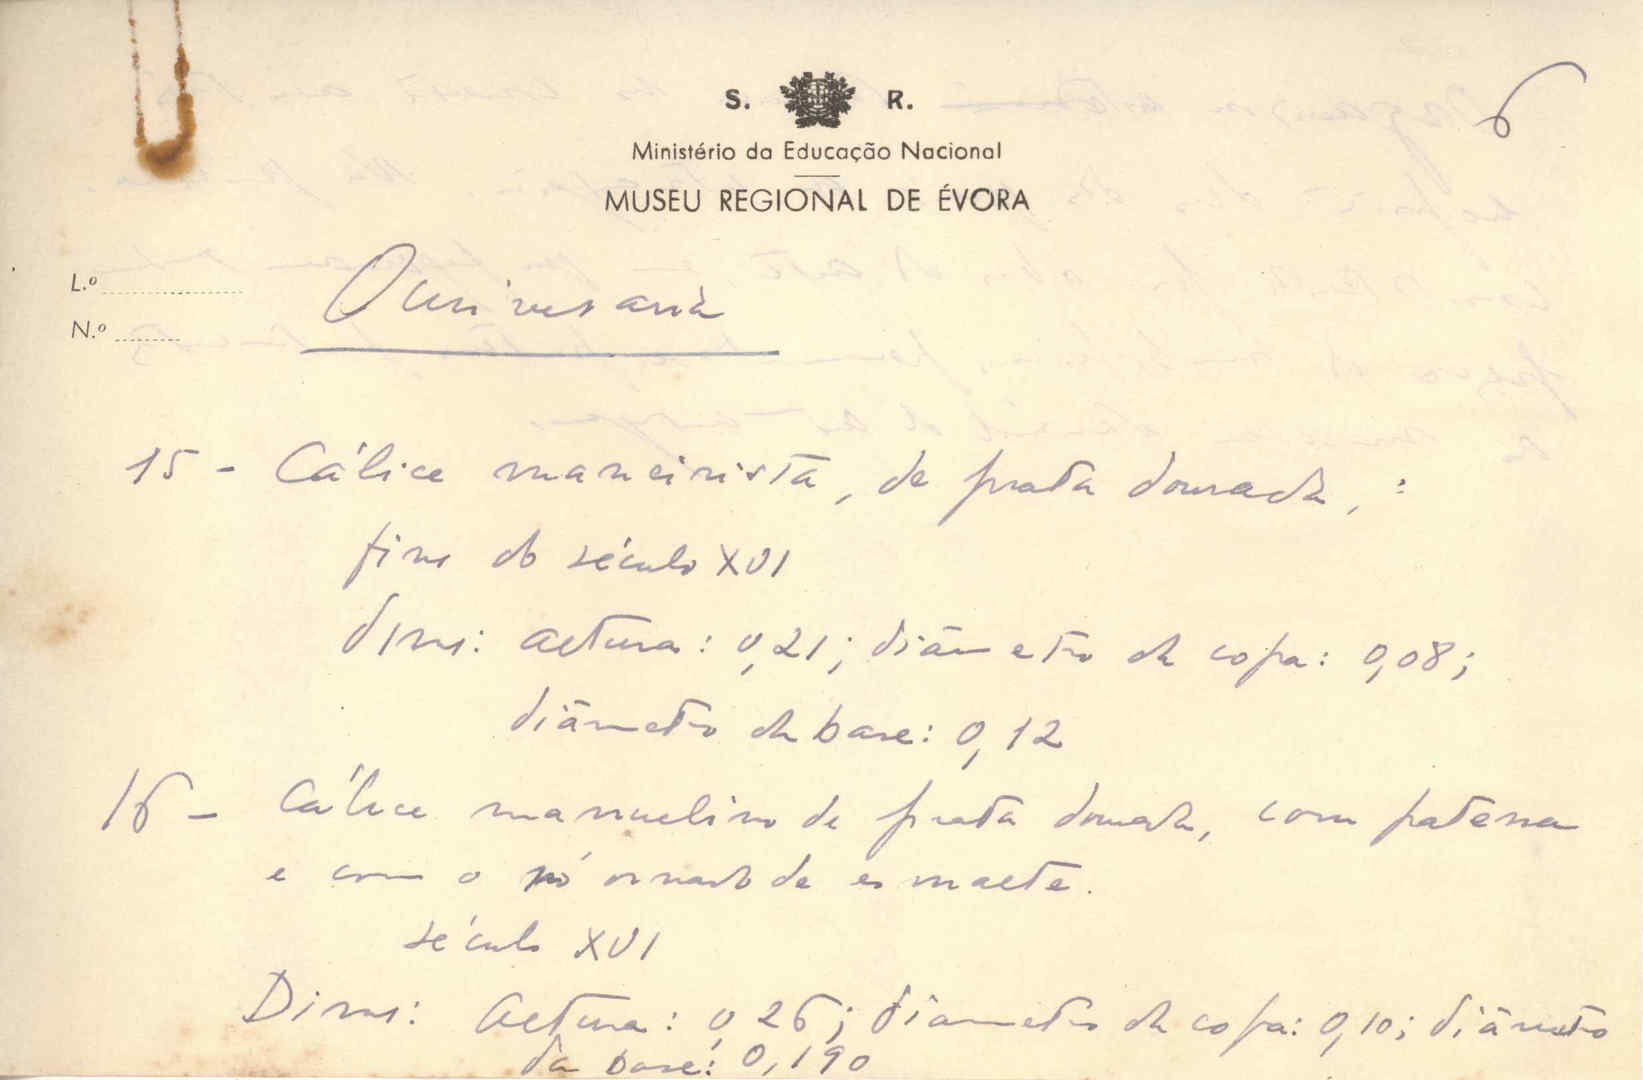 6
S. R.
Ministério da Educação Nacional
MUSEU REGIONAL DE ÉVORA
L.º
N.º
Ourivesaria
15 - Cálice maneirista, de prata dourada, :
fins do século XVI
dims: altura: 0,21; diâmetro da copa: 0,08;
diâmetro da base: 0,12
16 - Cálice manuelino de prata dourada, com patena
e com o nó ornado de esmalte.
século XVI
Dims: altura: 0,26; diâmetro da copa: 0,10; diâmetro
da base: 0,190